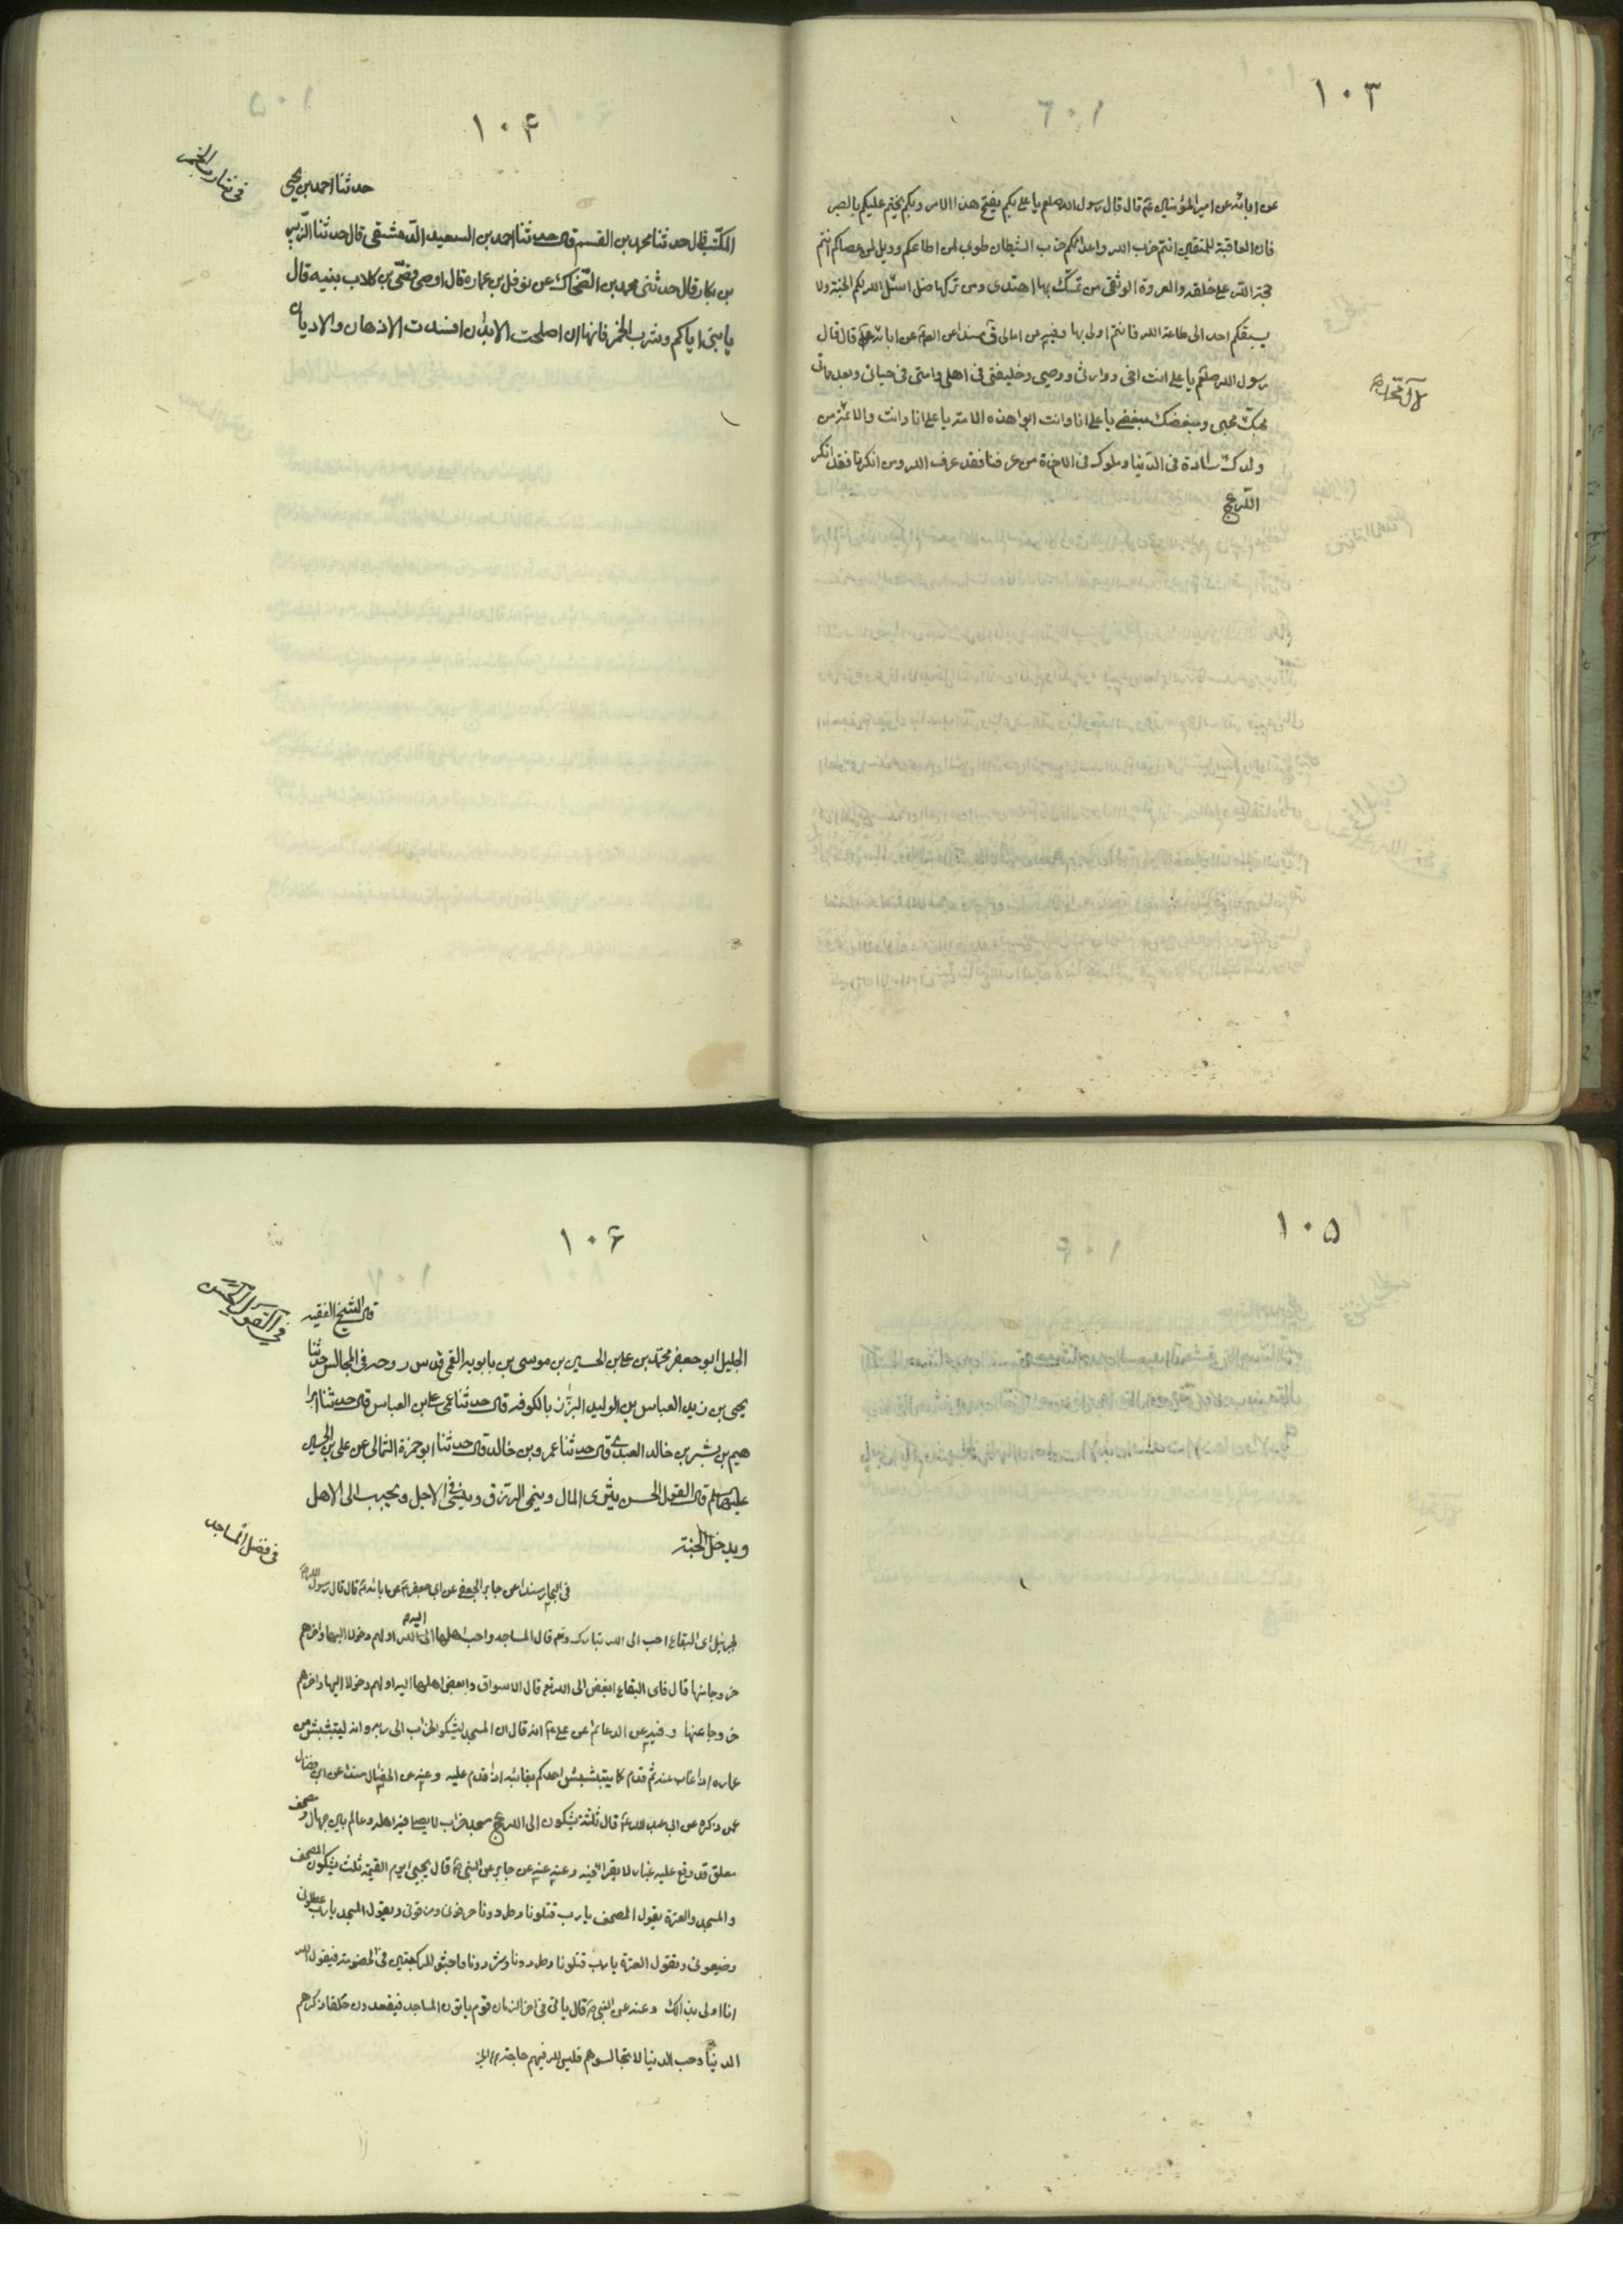 ١٠٣
عن ابائه عن امير المؤمنين ع قال قال رسول الله صلعم يا علي بكم يفتح هذا الامر وبكم يختم عليكم بالصبر
فان العاقبة للمتقين انتم حزب الله واعدائكم حزب الشيطان طوبى لمن اطاعكم وويل لمن عصاكم انتم
حجة الله على خلقه والعروة الوثقى من تمسك بها اهتدى ومن تركها ضل اسئل الله لكم الجنة ولا
يسبقكم احد الى طاعة الله فانتم اولى بها وفيه عن امالي مسندا عن عن ابائه قال قال
رسول الله صلعم يا علي انت اخي ووارثي ووصيي وخليفتي في اهلي وامتي في حياتي وبعد مماتي
محبك محبي ومبغضك مبغضي يا علي انا وانت ابوا هذه الامة يا علي انا وانت والائمة من
ولدك سادة في الدنيا وملوك في الاخرة من عرفنا فقد عرف الله ومن انكرنا فقد انكر
الله عج
١٠۴
في شارب الخمر
حدثنا احمد بن يحيى
المكتب قال حدثنا محمد بن القسم قال حدثنا احمد بن السعيد الدمشقي قال حدثنا الزبير
بن بكار قال حدثني محمد بن الضحاك عن نوفل بن عماره قال اوصى قصي بن كلاب بنيه قال
يا بني اياكم وشرب الخمر فانها ان اصلحت الابدان افسدت الاذهان والاديان
١٠۵
١٠۶
في القول الحسن
قال الشيخ الفقيه
الجليل ابو جعفر محمد بن علي بن الحسين بن موسى بن بابويه القمي قدس روحه في المجالس حدثنا
يحيى بن زيد العباس بن الوليد البزاز بالكوفه قال حدثنا عمي علي بن العباس قال حدثنا ابرا
هيم بن بشر بن خالد العبدي قال حدثنا عمرو بن خالد قال حدثنا ابو حمزة الثمالي عن علي بن الحسين
عليهما السلام قال القول الحسن يثرى المال وينمي الرزق وينسئ في الاجل ويحبب الى الاهل
ويدخل الجنة
في فضل المساجد
في البحار مسندا عن جابر الجعفي عن ابي جعفر ع عن ابائه ع قال قال رسول الله ص
لجبرئيل اي البقاع احب الى الله تبارك وتع قال المساجد واحب اهلها الى الله اولهم دخولا اليها واخرهم
خروجا منها قال فاي البقاع ابغض الى الله تع قال الاسواق وابغض اهلها اليه اولهم دخولا اليها واخرهم
خروجا عنها وفيه عن الدعائم عن علي ع انه قال ان المسجد ليشكو الخراب الى ربه وانه ليتبشبش من
عماره اذا غاب عنه ثم قدم كما يتبشبش احدكم بغائبه اذا قدم عليه وعنه عن الخصال مسندا عن ابن فضال
عمن ذكره عن ابي عبد الله ع قال ثلثة يشكون الى الله عج مسجد خراب لا يصلي فيه اهله وعالم بين جهال ومصحف
معلق قد وقع عليه غبار لا يقرا فيه وعنه عنه عن جابر عن النبي ص قال يجيئ يوم القيمة ثلث يشكون المصحف
والمسجد والعترة يقول المصحف يا رب حرفوني ومزقوني ويقول المسجد يا رب عطلوني
وضيعوني وتقول العترة يا رب قتلونا وطردونا وشردونا فاجثو للركبتين في الخصومة فيقول الله
انا اولى بذلك وعنه عن النبي ص قال ياتي في اخر الزمان قوم ياتون المساجد فيقعدون حلقا ذكرهم
الدنيا وحب الدنيا لا تجالسوهم فليس لله فيهم حاجة